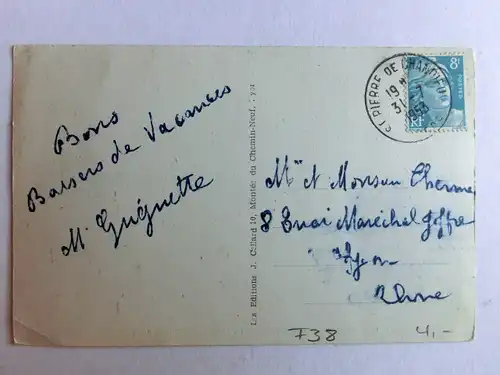 Bons
Baisers de Vacances
M. Guéguette
Les Editions J. Cellard 19, Montée du Chemin-Neuf, Lyon
ST PIERRE DE CHANDIEU
19 H
31-7
1953
8F
POSTES
RF
Mme et Monsieur
8 Quai Maréchal Joffre
Lyon
Rhône
F38
4,-